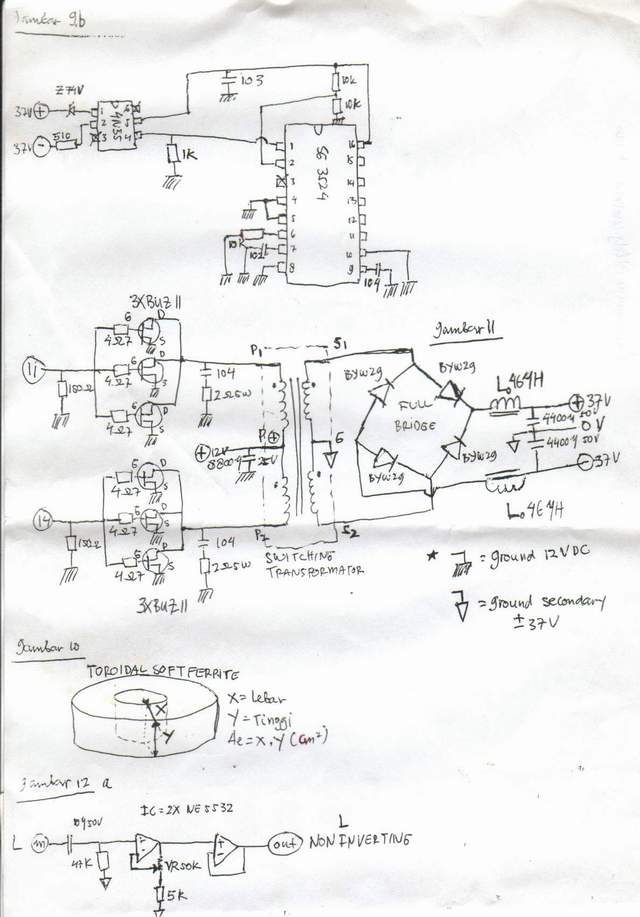 Gambar 9.b
103
10K
10K
Z74V
37V +
37V -
510
4N35
1
2
3
6
5
4
1K
SG 3524
1
2
3
4
5
6
7
8
16
15
14
13
12
11
10
9
10K
102
104
3XBUZ 11
Gambar 11
G
D
S
4Ω7
G
D
S
4Ω7
4Ω7
S
11
150Ω
104
2Ω5W
P1
S1
P
+
12V
8800μ
25V
G
BYW29
BYW29
FULL
BRIDGE
BYW29
BYW29
L. 46μH
+ 37V
4400μ 50V
0V
4400μ 50V
- 37V
L. 46μH
14
150Ω
G
D
S
4Ω7
G
D
S
4Ω7
G
D
S
4Ω7
104
2Ω5W
P2
S2
SWITCHING
TRANSFORMATOR
3XBUZ 11
* = ground 12VDC
= ground secondary
± 37V
Gambar 10
TOROIDAL SOFT FERRITE
X
Y
X = Lebar
Y = Tinggi
Ae = X . Y (cm²)
Gambar 12 a
IC = 2X NE 5532
L
in
10μ50V
47K
VR50K
5K
out
L
NON INVERTING